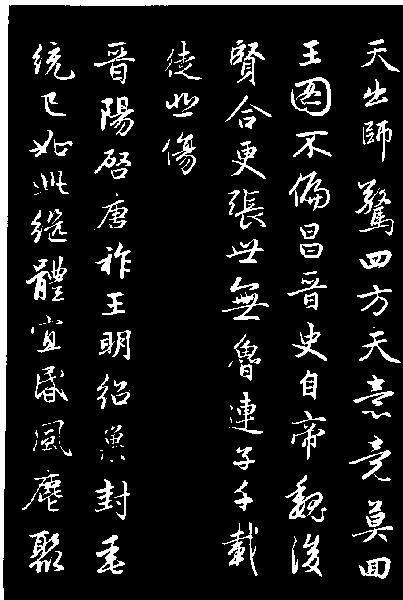 天出師驚四方天意竟莫回
王圖不偏昌晉史自帝魏後
賢合更張世無魯連子千載
徒悲傷
晉陽啓唐祚王明紹巢封垂
統已如此繼體宜昏風麀聚